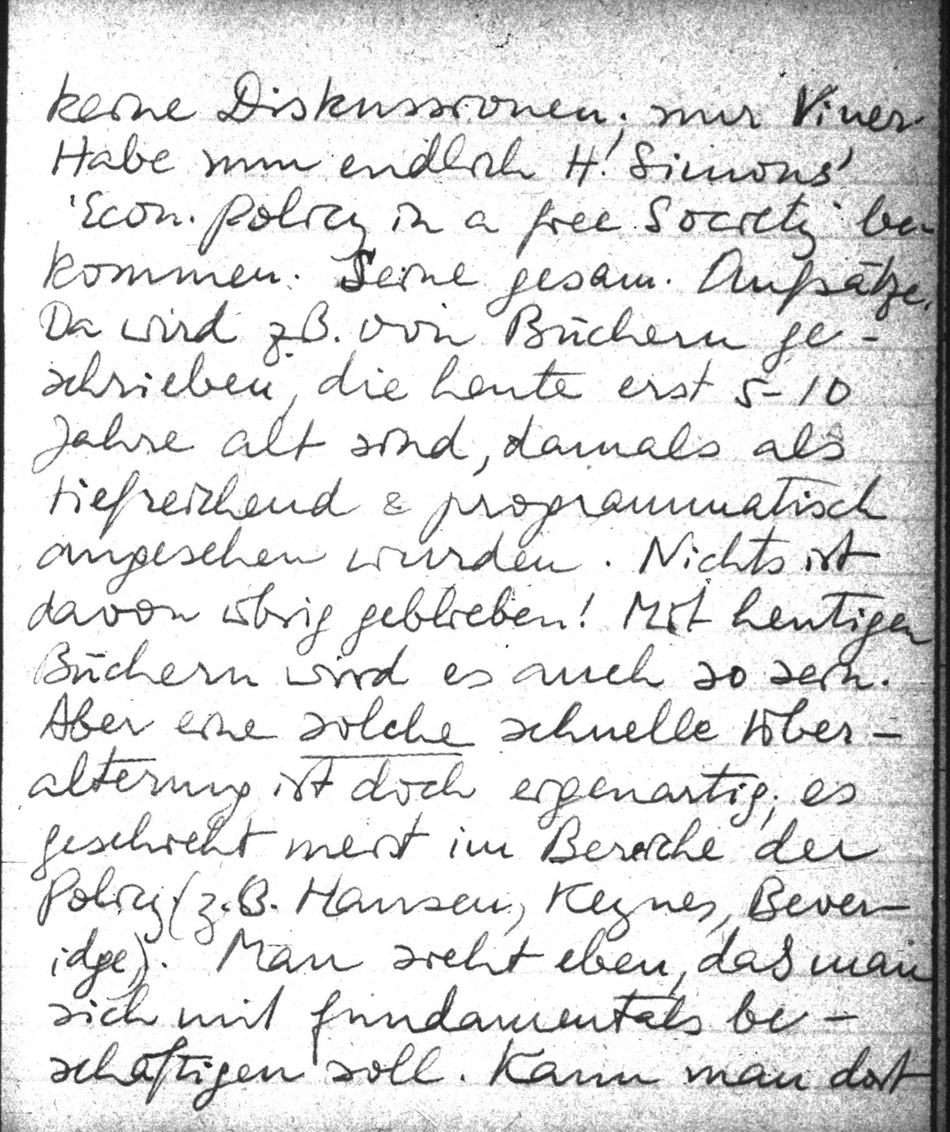 keine Diskussionen; nur Viner.
Habe nun endlich H. Simons'
'Econ. Policy in a free Society' be-
kommen. Seine gesam. Aufsätze.
Da wird z.B. von Büchern ge-
schrieben, die heute erst 5-10
Jahre alt sind, damals als
tiefreichend & programmatisch
angesehen wurden. Nichts ist
davon übrig geblieben! Mit heutigen
Büchern wird es auch so sein.
Aber eine solche schnelle Über-
alterung ist doch eigenartig; es
geschieht meist im Bereiche der
Policy (z.B. Hansen, Keynes, Bever-
idge). Man sieht eben, daß man
sich mit fundamentals be-
schäftigen soll. Kann man dort